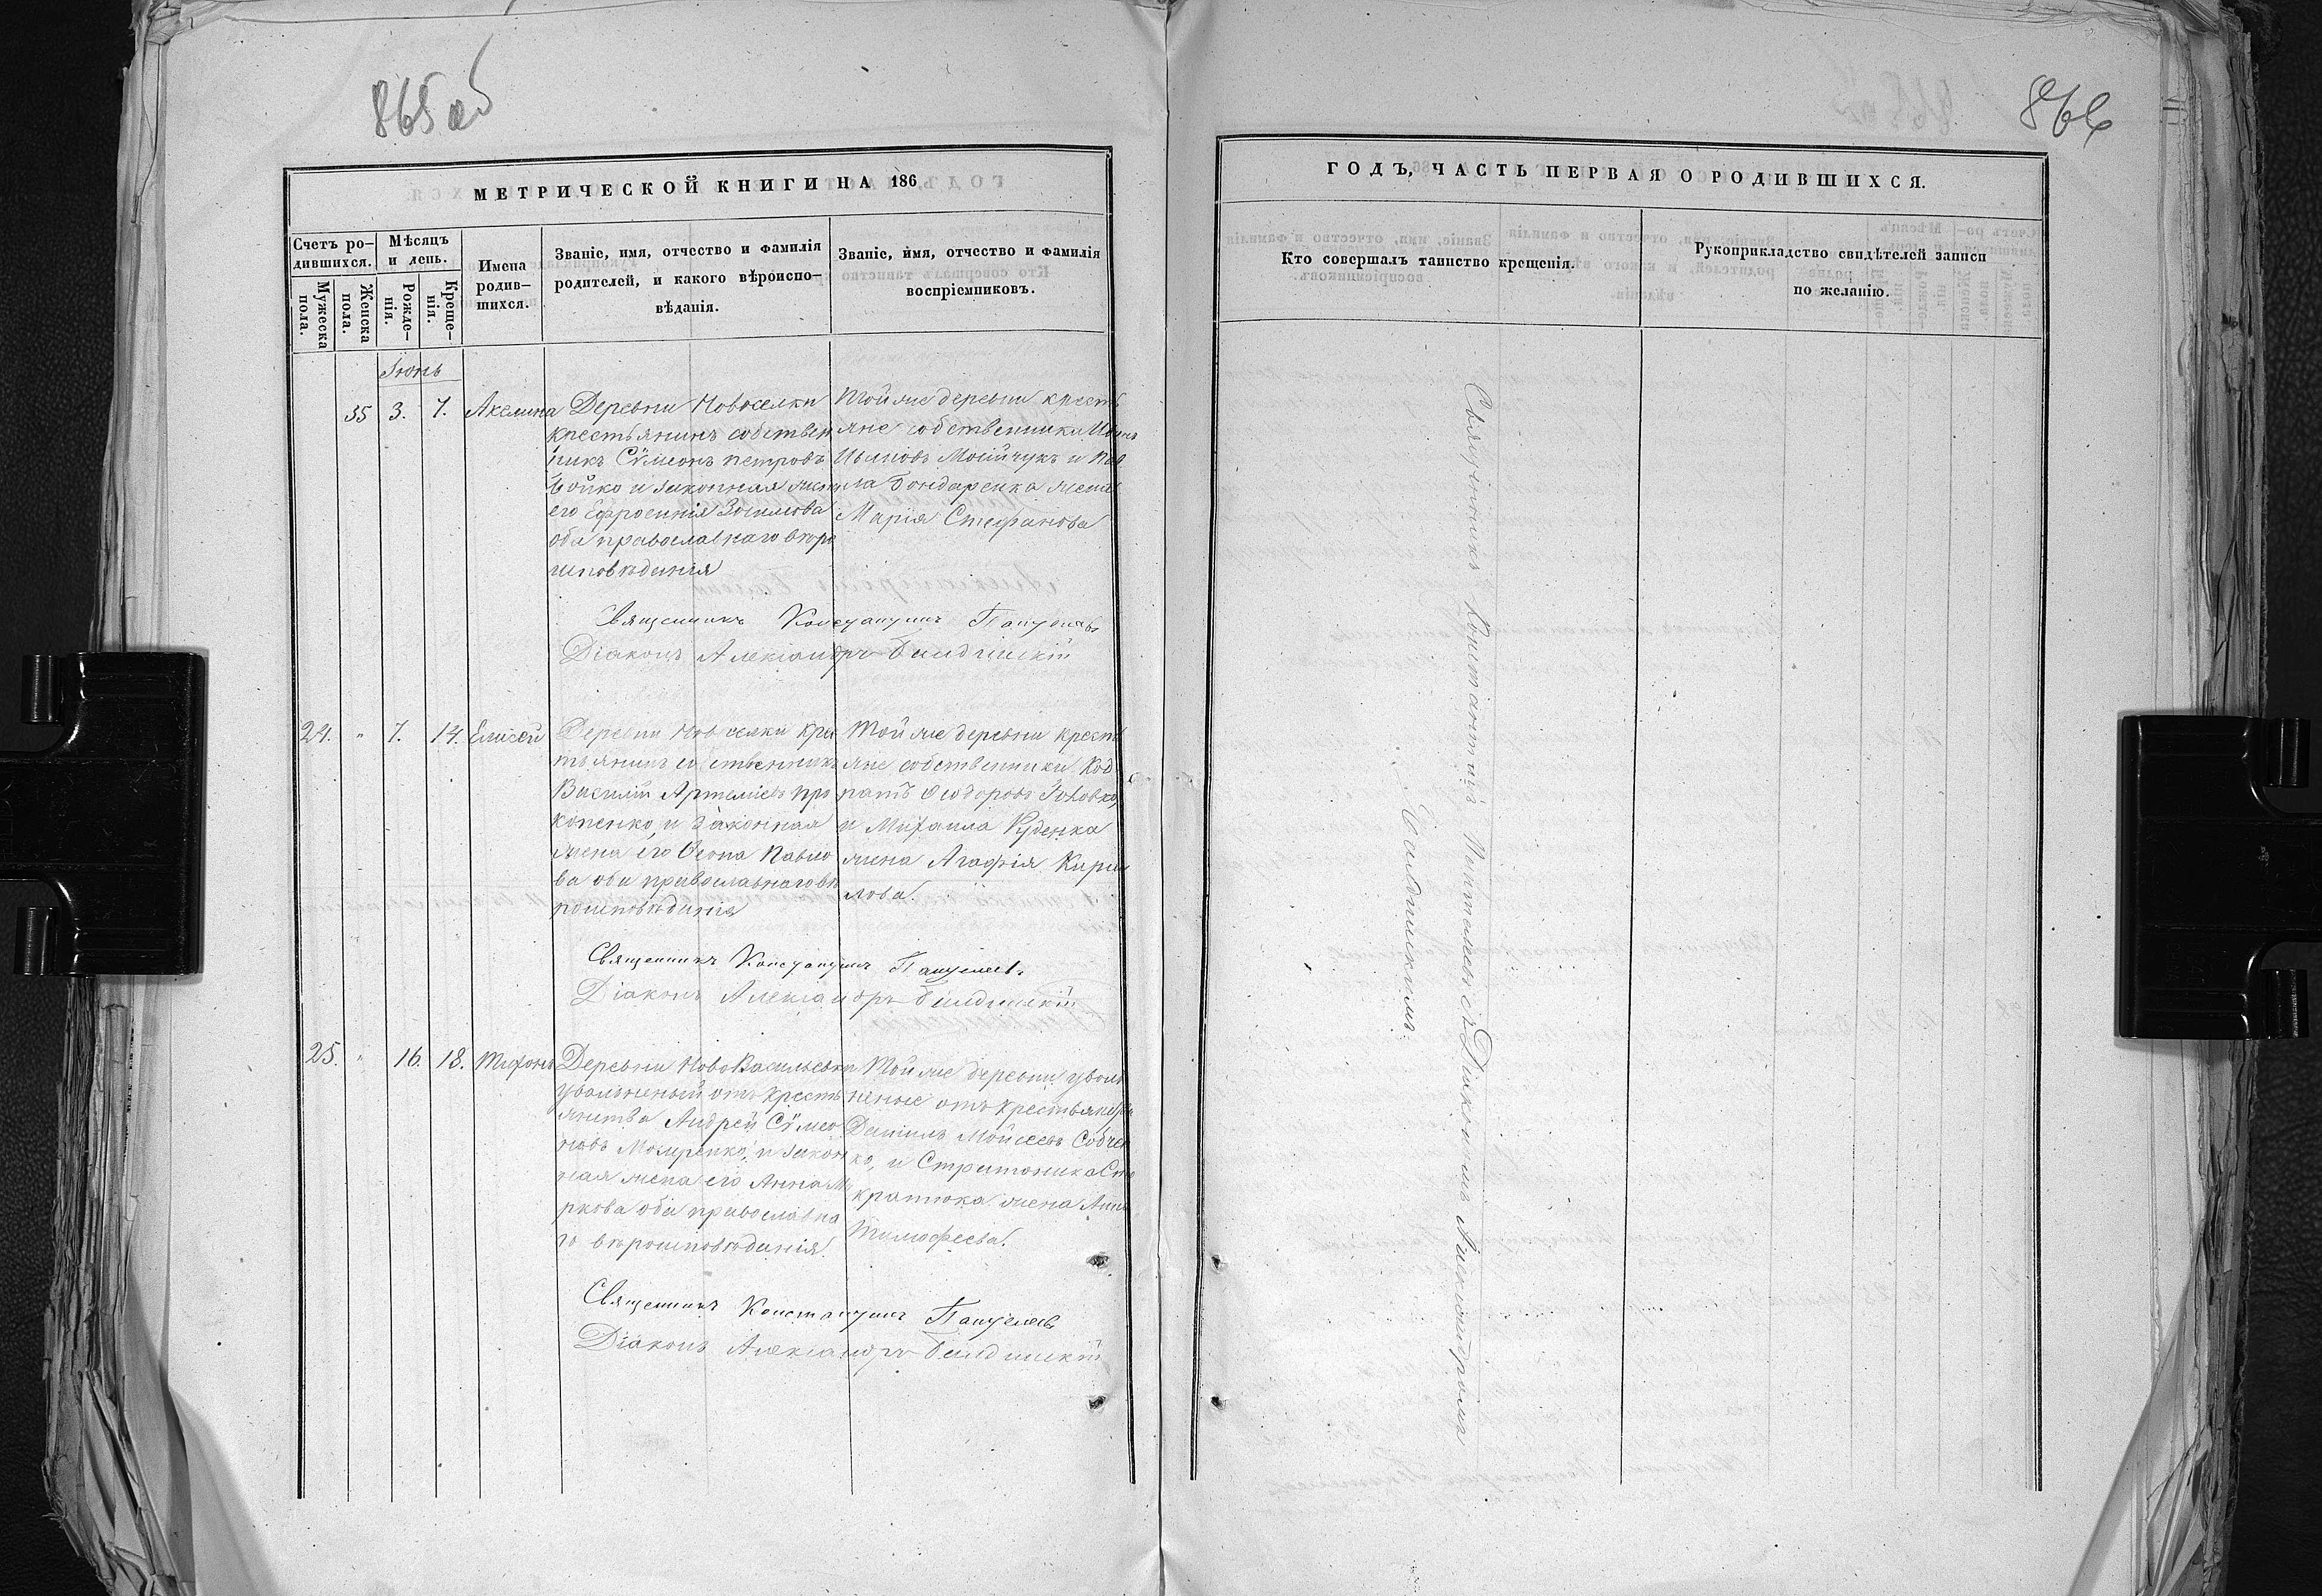 865 об
МЕТРИЧЕСКОЙ КНИГИ НА 186
Счетъ ро-
дившихся.
Мѣсяцъ
и день.
Имена
родив-
шихся.
Званіе, имя, отчество и фамилія
родителей, и какого вѣроиспо-
вѣданія.
Званіе, имя, отчество и фамилія
воспріемниковъ.
Мужеска
пола.
Женска
пола.
Рожде-
нія.
Креще-
нія.
Іюнь
35 3. 7. Акелина
Деревни Новоселки
крестьянинъ собствен
никъ Сѵмеонъ Петровъ
Бойко и законная жен
его Ефросинія Зосимова
оба православнаго вѣро
исповѣданія
Той же деревни кресть
яне собственники Иванъ
Ивановъ Мойсѣйчукъ и Пав
ла Бондаренка жена
Марія Стефанова
Священникъ Константинъ
Діаконъ Александръ
24. " 7. 14. Елисей
Деревни Новоселки кре
стьянинъ собственникъ
Василій Артеміевъ Про
копенко, и законная
жена его Ѳеона Павло
ва оба православнаго вѣ
роисповѣданія
Той же деревни кресть
яне собственники Код
ратъ Ѳеодоровъ
и Михаила Руденка
жена Агафія Кири
лова.
Священникъ Константинъ
Діаконъ Александръ
25. " 16. 18. Тихонъ
Деревни НовоВасильевки
уволненый отъ кресть
янства Андрей Сѵмео
новъ и закон
ная жена его Анна Ма
ркова оба православна
го вѣроисповѣданія.
Той же деревни уволь
неные отъ крестьянства
Даниилъ Мойсеевъ Собчен
ко, и Стратоника
жена Анна
Тимофеева.
Священникъ Константинъ
Діаконъ Александръ
866
ГОДЪ, ЧАСТЬ ПЕРВАЯ О РОДИВШИХСЯ.
Кто совершалъ таинство крещенія.
Рукоприкладство свидѣтелей записи
по желанію.
Священникъ Константинъ съ Діакономъ Александромъ